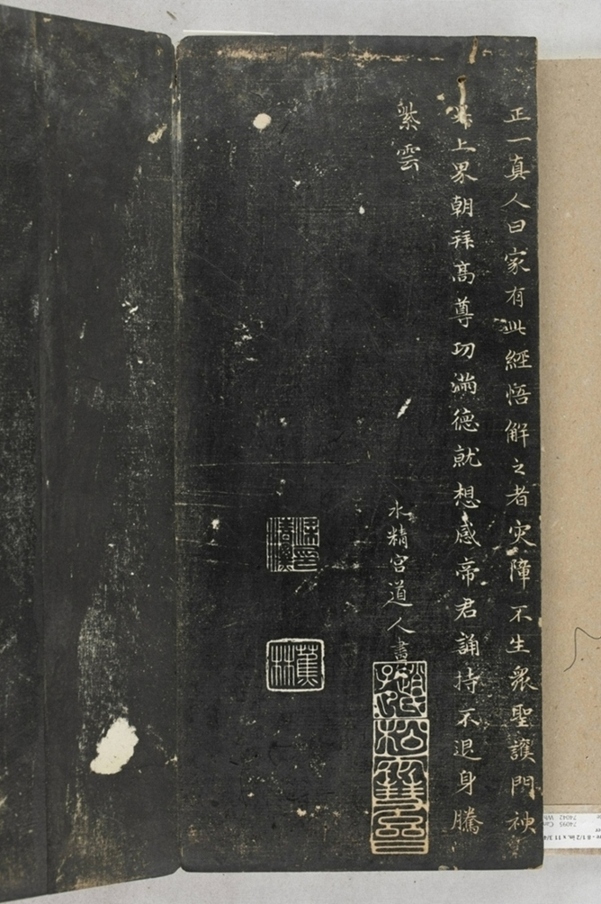 正一真人曰家有此經悟解之者灾障不生衆聖護門神
升上界朝拜高尊功滿德就想感帝君誦持不退身騰
紫雲
水精宮道人書
蕉林